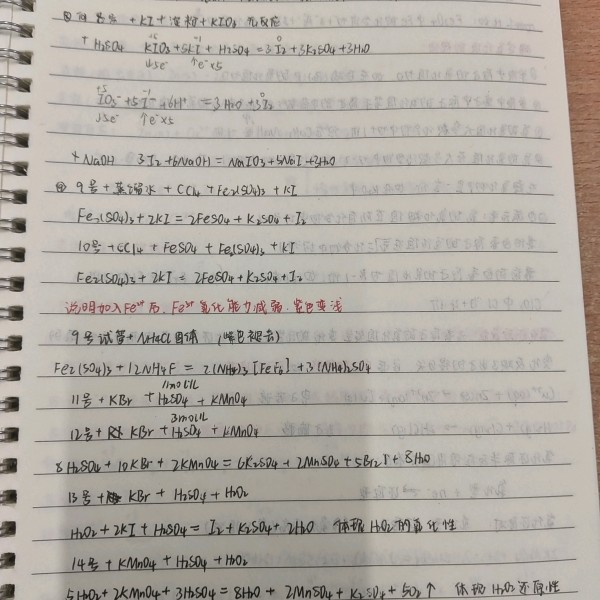 + KI + 淀粉 + KIO₃ 无反应
+ H₂SO₄ KIO₃+5KI + H₂SO₄ = 3I₂ + 3K₂SO₄ + 3H₂O
+5 -1 0
↓5e⁻ ↑e⁻×5
+5 -1 0
IO₃⁻ + 5I⁻ + 6H⁺ = 3H₂O + 3I₂
↓5e⁻ ↑e⁻×5
+ NaOH 3I₂ + 6NaOH = NaIO₃ + 5NaI + 3H₂O
④ 9号 + 蒸馏水 + CCl₄ + Fe₂(SO₄)₃ + KI
Fe₂(SO₄)₃ + 2KI = 2FeSO₄ + K₂SO₄ + I₂
10号 + CCl₄ + FeSO₄ + Fe₂(SO₄)₃ + KI
Fe₂(SO₄)₃ + 2KI = 2FeSO₄ + K₂SO₄ + I₂
说明加入Fe²⁺后, Fe³⁺氧化能力减弱, 紫色变浅
9号试管 + NH₄Cl固体 (紫色褪去)
Fe₂(SO₄)₃ + 12NH₄F = 2(NH₄)₃[FeF₆] + 3(NH₄)₂SO₄
1mol/L
11号 + KBr + H₂SO₄ + KMnO₄
3mol/L
12号 + KBr + H₂SO₄ + KMnO₄
8H₂SO₄ + 10KBr + 2KMnO₄ = 6K₂SO₄ + 2MnSO₄ + 5Br₂↑ + 8H₂O
13号 + KBr + H₂SO₄ + H₂O₂
H₂O₂ + 2KI + H₂SO₄ = I₂ + K₂SO₄ + 2H₂O 体现H₂O₂的氧化性
14号 + KMnO₄ + H₂SO₄ + H₂O₂
5H₂O₂ + 2KMnO₄ + 3H₂SO₄ = 8H₂O + 2MnSO₄ + K₂SO₄ + 5O₂↑ 体现H₂O₂还原性